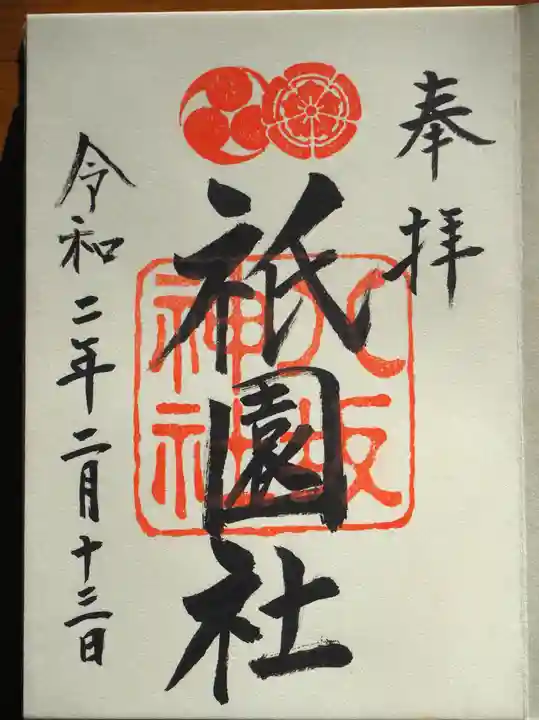 奉拝
祇園社
八坂
神社
令和二年二月十三日